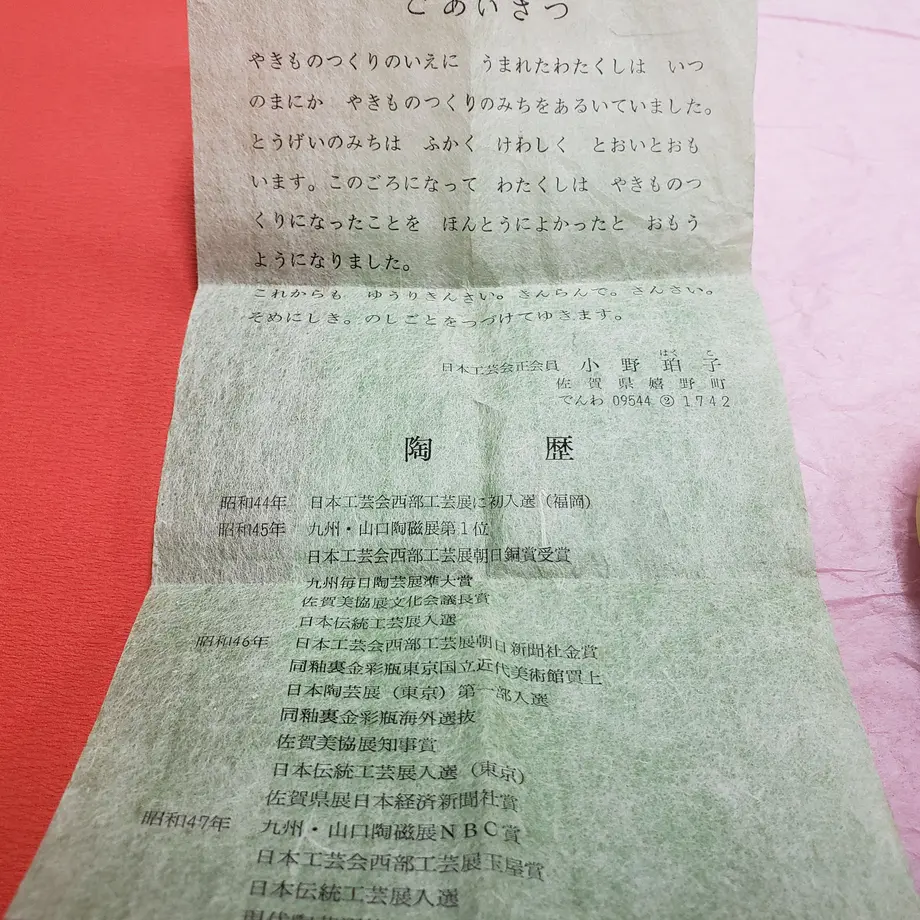 ごあいさつ
やきものつくりのいえに うまれたわたくしは いつ
のまにか やきものつくりのみちをあるいていました。
とうげいのみちは ふかく けわしく とおいとおも
います。このごろになって わたくしは やきものつ
くりになったことを ほんとうによかったと おもう
ようになりました。
これからも ゆうりきんさい。きんらんで。さんさい。
そめにしき。のしごとをつづけてゆきます。
はくこ
日本工芸会正会員 小野珀子
佐賀県嬉野町
でんわ 09544 ③ 1742
陶歴
昭和44年 日本工芸会西部工芸展に初入選(福岡)
昭和45年 九州・山口陶磁展第1位
日本工芸会西部工芸展朝日銅賞受賞
九州毎日陶芸展準大賞
佐賀美協展文化会議長賞
日本伝統工芸展入選
昭和46年 日本工芸会西部工芸展朝日新聞社金賞
同釉裏金彩瓶東京国立近代美術館買上
日本陶芸展(東京)第一部入選
同釉裏金彩瓶海外選抜
佐賀美協展知事賞
日本伝統工芸展入選(東京)
佐賀県展日本経済新聞社賞
昭和47年 九州・山口陶磁展NBC賞
日本工芸会西部工芸展玉屋賞
日本伝統工芸展入選